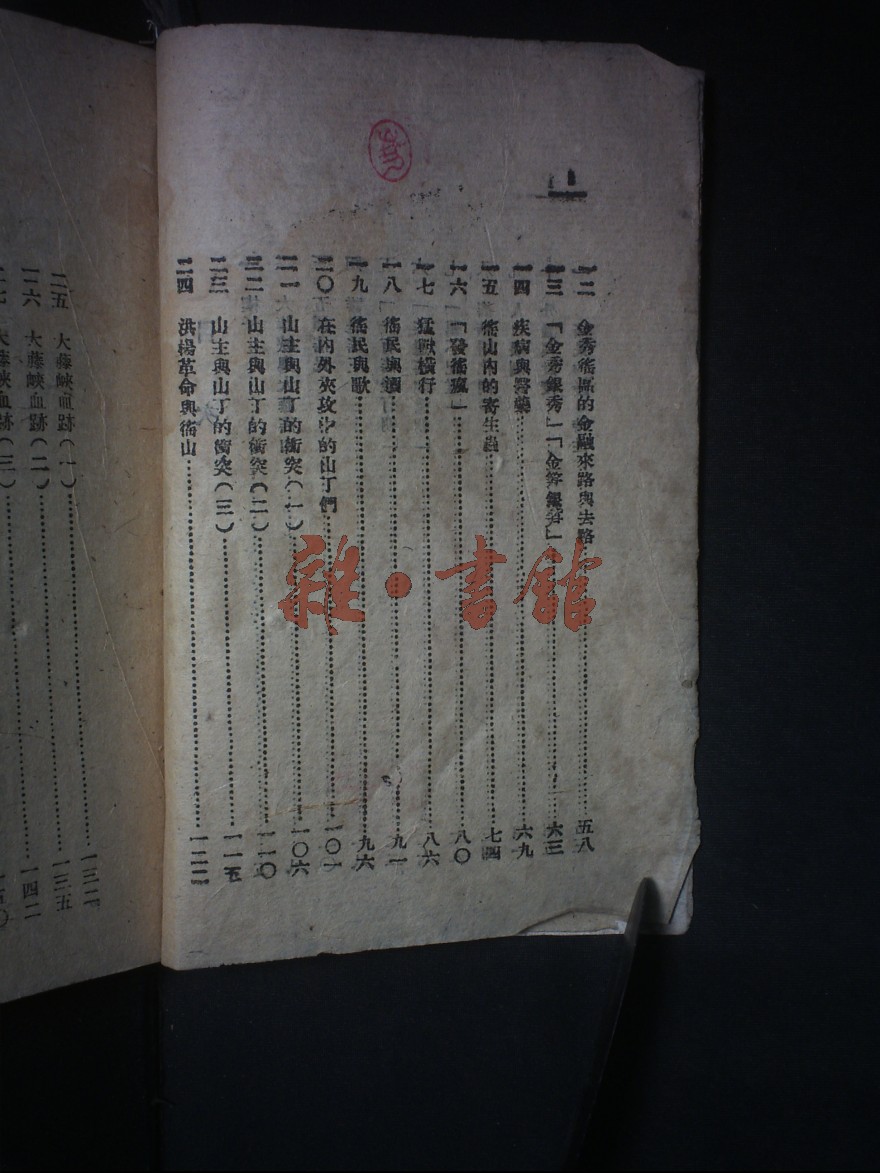 一二 金秀徭區的金融來路與去路……五八
一三 「金秀銀秀」「金穿銀穿」……六三
一四 疾病與醫藥……六九
一五 徭山內的寄生蟲……七四
一六 「發徭瘋」……八〇
一七 猛獸橫行……八六
一八 徭民與酒……九一
一九 徭民與歌……九六
二〇 在內外夾攻中的山丁們……一〇一
二一 山主與山丁的衝突(一)……一〇六
二二 山主與山丁的衝突(二)……一一〇
二三 山主與山丁的衝突(三)……一一五
二四 洪楊革命與徭山……一二二
二五 大藤峽血跡(一)……一三二
二六 大藤峽血跡(二)……一三五
二七 大藤峽血跡(三)……一四二
雜·書館